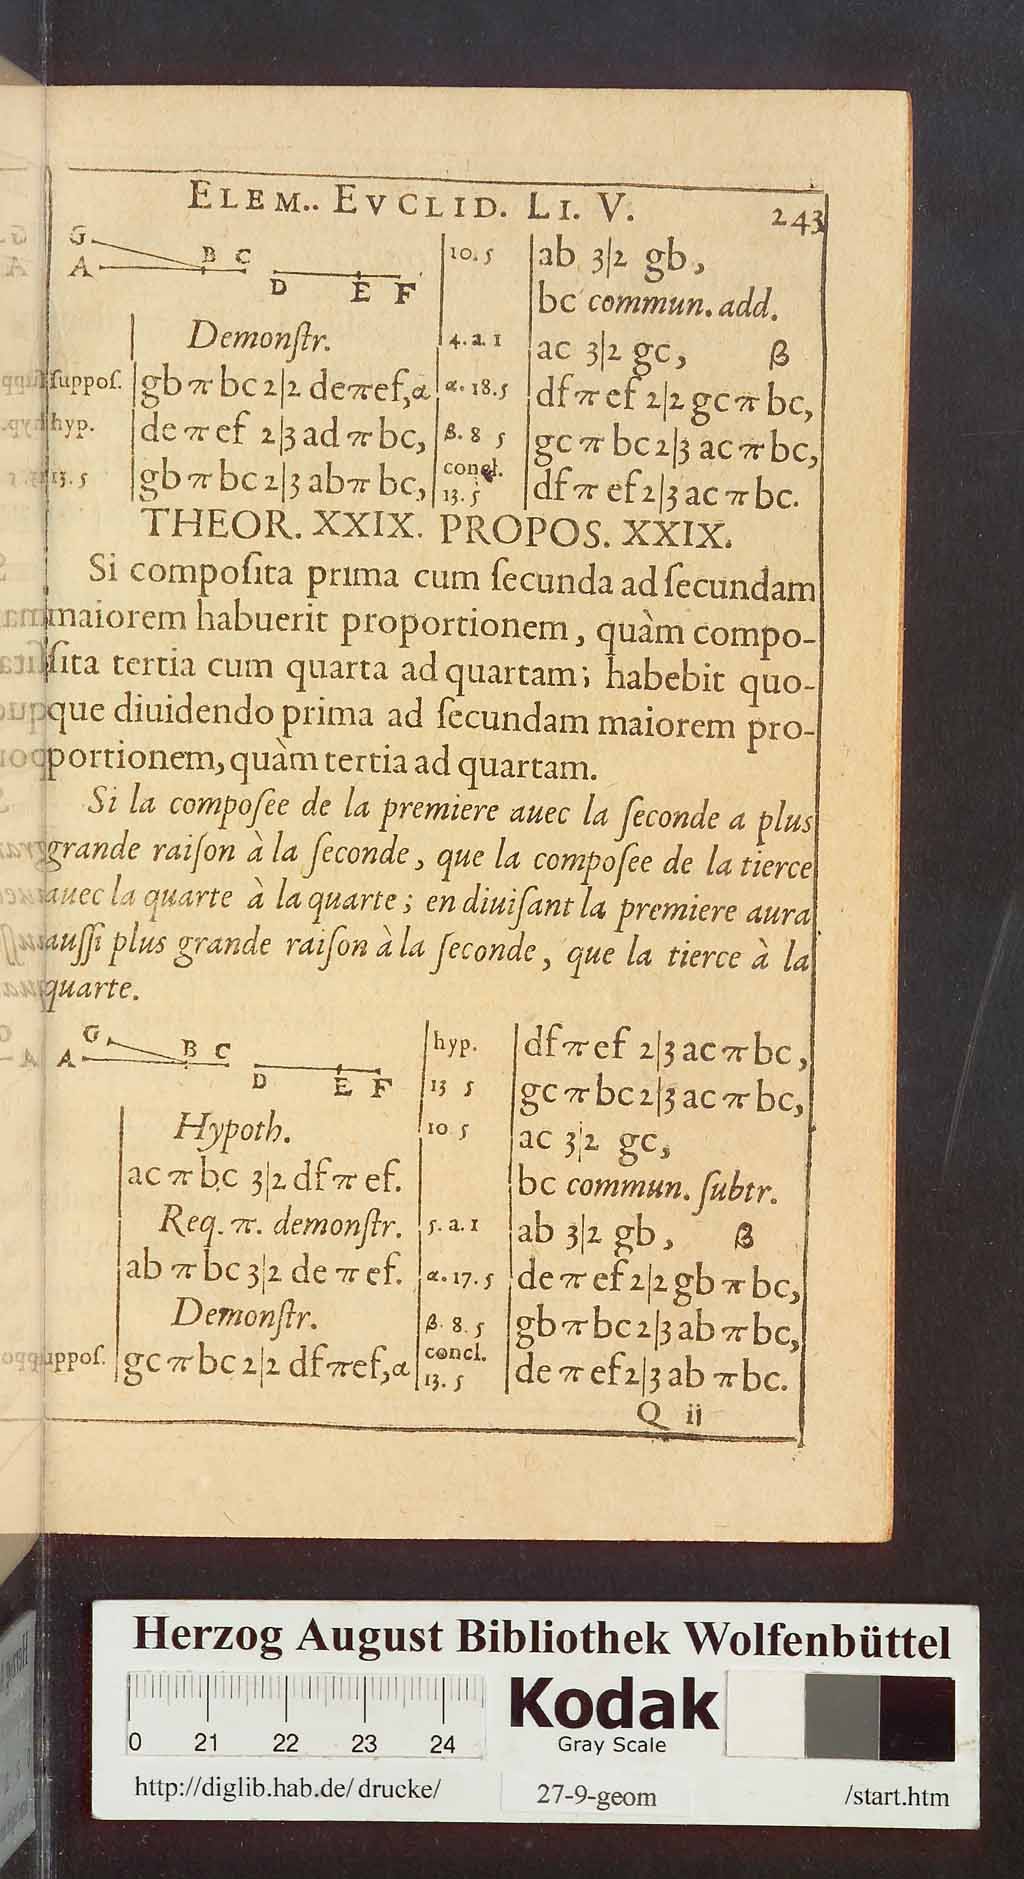 ELEM.. EVCLID. LI. V. 243
G
A B C D E F
Demonſtr.
ſuppoſ. gb π bc 2|2 de π ef, α
hyp. de π ef 2|3 ad π bc,
13. 5 gb π bc 2|3 ab π bc,
10. 5 ab 3|2 gb,
bc commun. add.
4. a. 1 ac 3|2 gc, β
α. 18. 5 df π ef 2|2 gc π bc,
β. 8 5 gc π bc 2|3 ac π bc,
concl.
13. 5 df π ef 2|3 ac π bc.
THEOR. XXIX. PROPOS. XXIX.
Si compoſita prima cum ſecunda ad ſecundam
maiorem habuerit proportionem, quàm compo-
ſita tertia cum quarta ad quartam; habebit quo-
que diuidendo prima ad ſecundam maiorem pro-
portionem, quàm tertia ad quartam.
Si la compoſee de la premiere auec la ſeconde a plus
grande raiſon à la ſeconde, que la compoſee de la tierce
auec la quarte à la quarte; en diuiſant la premiere aura
auſſi plus grande raiſon à la ſeconde, que la tierce à la
quarte.
G
A B C D E F
Hypoth.
ac π bc 3|2 df π ef.
Req. π. demonſtr.
ab π bc 3|2 de π ef.
Demonſtr.
uppoſ. gc π bc 2|2 df π ef, α
hyp. df π ef 2|3 ac π bc,
13 5 gc π bc 2|3 ac π bc,
10 5 ac 3|2 gc,
bc commun. ſubtr.
5. a. 1 ab 3|2 gb, β
α. 17. 5 de π ef 2|2 gb π bc,
β. 8. 5 gb π bc 2|3 ab π bc,
concl.
13. 5 de π ef 2|3 ab π bc.
Q ij
Herzog August Bibliothek Wolfenbüttel
0 21 22 23 24
Kodak
Gray Scale
http://diglib.hab.de/ drucke/ 27-9-geom /start.htm